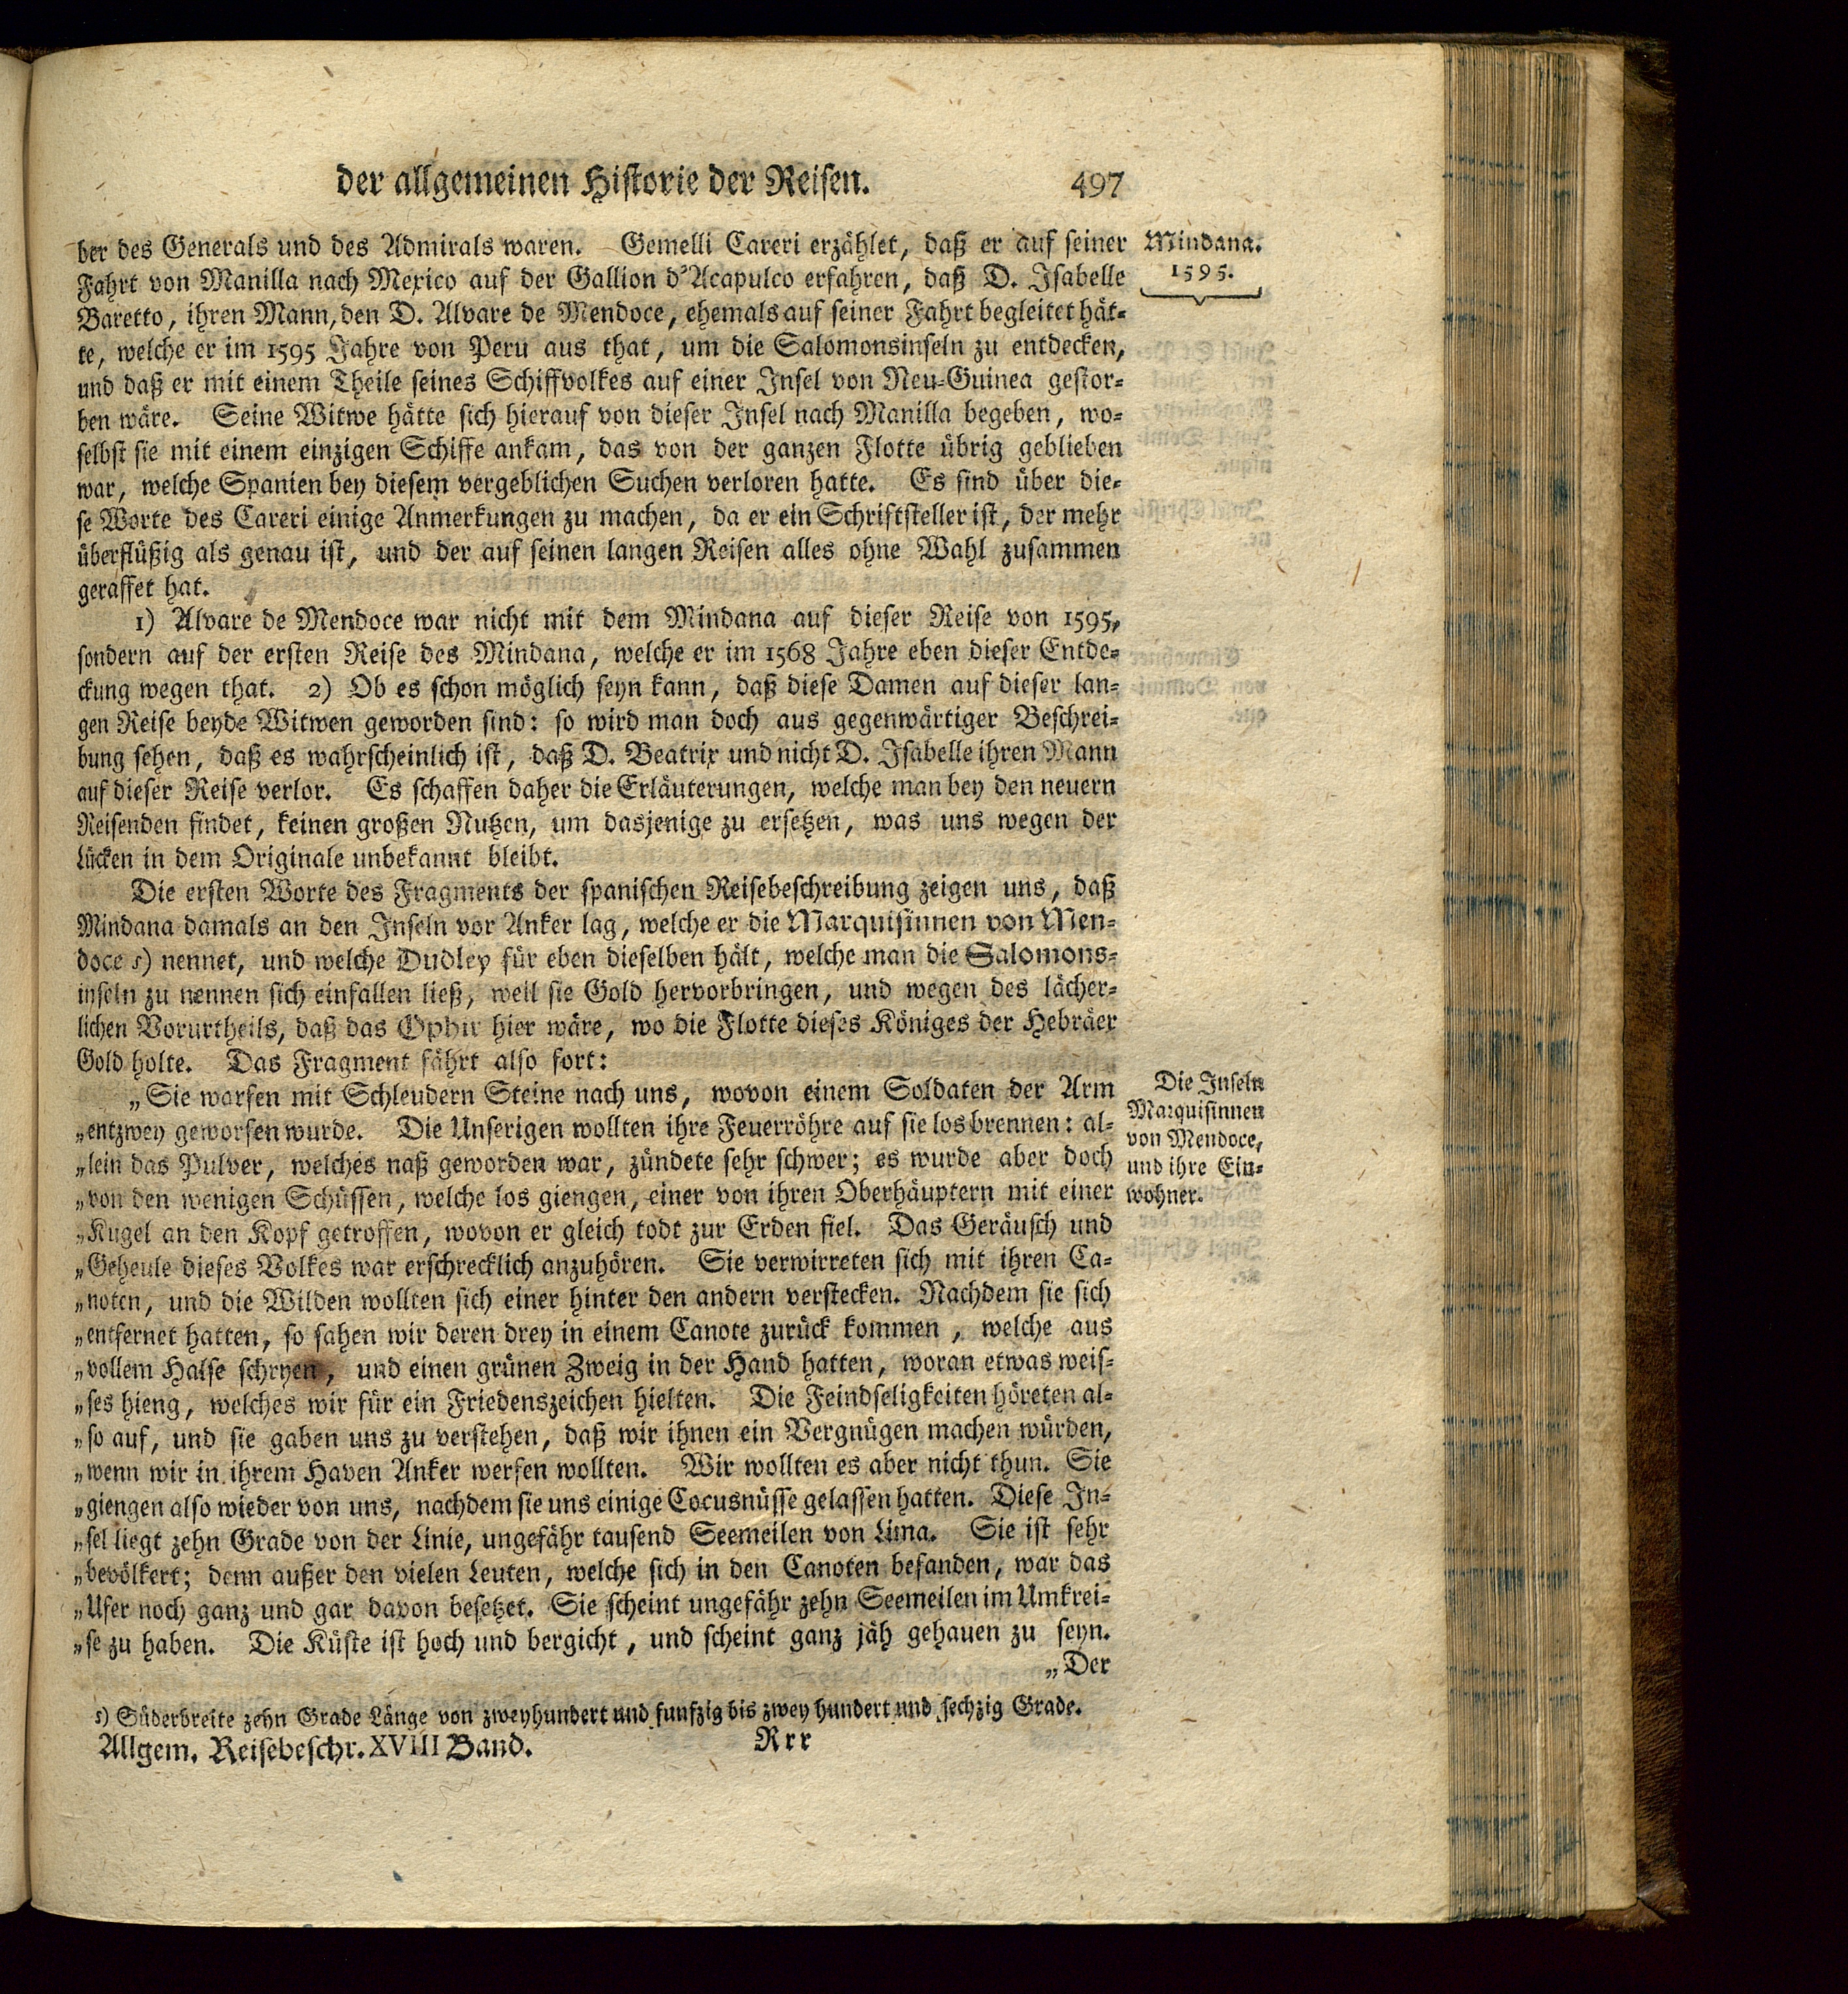 der allgemeinen Historie der Reisen. 497
ber des Generals und des Admirals waren. Gemelli Careri erzählet, daß er auf seiner
Fahrt von Manilla nach Mexico auf der Gallion d'Acapulco erfahren, daß D. Isabelle
Baretto, ihren Mann, den D. Alvare de Mendoce, ehemals auf seiner Fahrt begleitet hät-
te, welche er im 1595 Jahre von Peru aus that, um die Salomonsinseln zu entdecken,
und daß er mit einem Theile seines Schiffvolkes auf einer Insel von Neu-Guinea gestor-
ben wäre. Seine Witwe hätte sich hierauf von dieser Insel nach Manilla begeben, wo-
selbst sie mit einem einzigen Schiffe ankam, das von der ganzen Flotte übrig geblieben
war, welche Spanien bey diesem vergeblichen Suchen verloren hatte. Es sind über die-
se Worte des Careri einige Anmerkungen zu machen, da er ein Schriftsteller ist, der mehr
überflüßig als genau ist, und der auf seinen langen Reisen alles ohne Wahl zusammen
geraffet hat.
Mindana.
1595.
1) Alvare de Mendoce war nicht mit dem Mindana auf dieser Reise von 1595,
sondern auf der ersten Reise des Mindana, welche er im 1568 Jahre eben dieser Entde-
ckung wegen that. 2) Ob es schon möglich seyn kann, daß diese Damen auf dieser lan-
gen Reise beyde Witwen geworden sind: so wird man doch aus gegenwärtiger Beschrei-
bung sehen, daß es wahrscheinlich ist, daß D. Beatrix und nicht D. Isabelle ihren Mann
auf dieser Reise verlor. Es schaffen daher die Erläuterungen, welche man bey den neuern
Reisenden findet, keinen großen Nutzen, um dasjenige zu ersetzen, was uns wegen der
Lücken in dem Originale unbekannt bleibt.
Die ersten Worte des Fragments der spanischen Reisebeschreibung zeigen uns, daß
Mindana damals an den Inseln vor Anker lag, welche er die Marquisinnen von Men-
doce s) nennet, und welche Dudley für eben dieselben hält, welche man die Salomons-
inseln zu nennen sich einfallen ließ, weil sie Gold hervorbringen, und wegen des lächer-
lichen Vorurtheils, daß das Ophir hier wäre, wo die Flotte dieses Königes der Hebräer
Gold holte. Das Fragment fährt also fort:
„Sie warfen mit Schleudern Steine nach uns, wovon einem Soldaten der Arm
„entzwey geworfen wurde. Die Unserigen wollten ihre Feuerröhre auf sie los brennen: al-
„lein das Pulver, welches naß geworden war, zündete sehr schwer; es wurde aber doch
„von den wenigen Schüssen, welche los giengen, einer von ihren Oberhäuptern mit einer
„Kugel an den Kopf getroffen, wovon er gleich todt zur Erden fiel. Das Geräusch und
„Geheule dieses Volkes war erschrecklich anzuhören. Sie verwirreten sich mit ihren Ca-
„noten, und die Wilden wollten sich einer hinter den andern verstecken. Nachdem sie sich
„entfernet hatten, so sahen wir deren drey in einem Canote zurück kommen, welche aus
„vollem Halse schryen, und einen grünen Zweig in der Hand hatten, woran etwas weis-
„ses hieng, welches wir für ein Friedenszeichen hielten. Die Feindseligkeiten höreten al-
„so auf, und sie gaben uns zu verstehen, daß wir ihnen ein Vergnügen machen würden,
„wenn wir in ihrem Haven Anker werfen wollten. Wir wollten es aber nicht thun. Sie
„giengen also wieder von uns, nachdem sie uns einige Cocusnüsse gelassen hatten. Diese In-
„sel liegt zehn Grade von der Linie, ungefähr tausend Seemeilen von Lima. Sie ist sehr
„bevölkert; denn außer den vielen Leuten, welche sich in den Canoten befanden, war das
„Ufer noch ganz und gar davon besetzet. Sie scheint ungefähr zehn Seemeilen im Umkrei-
„se zu haben. Die Küste ist hoch und bergicht, und scheint ganz jäh gehauen zu seyn.
„Der
Die Inseln
Marquisinnen
von Mendoce,
und ihre Ein-
wohner.
s) Süderbreite zehn Grade Länge von zweyhundert und funfzig bis zwey hundert und sechzig Grade.
Allgem. Reisebeschr. XVIII Band. Rrr